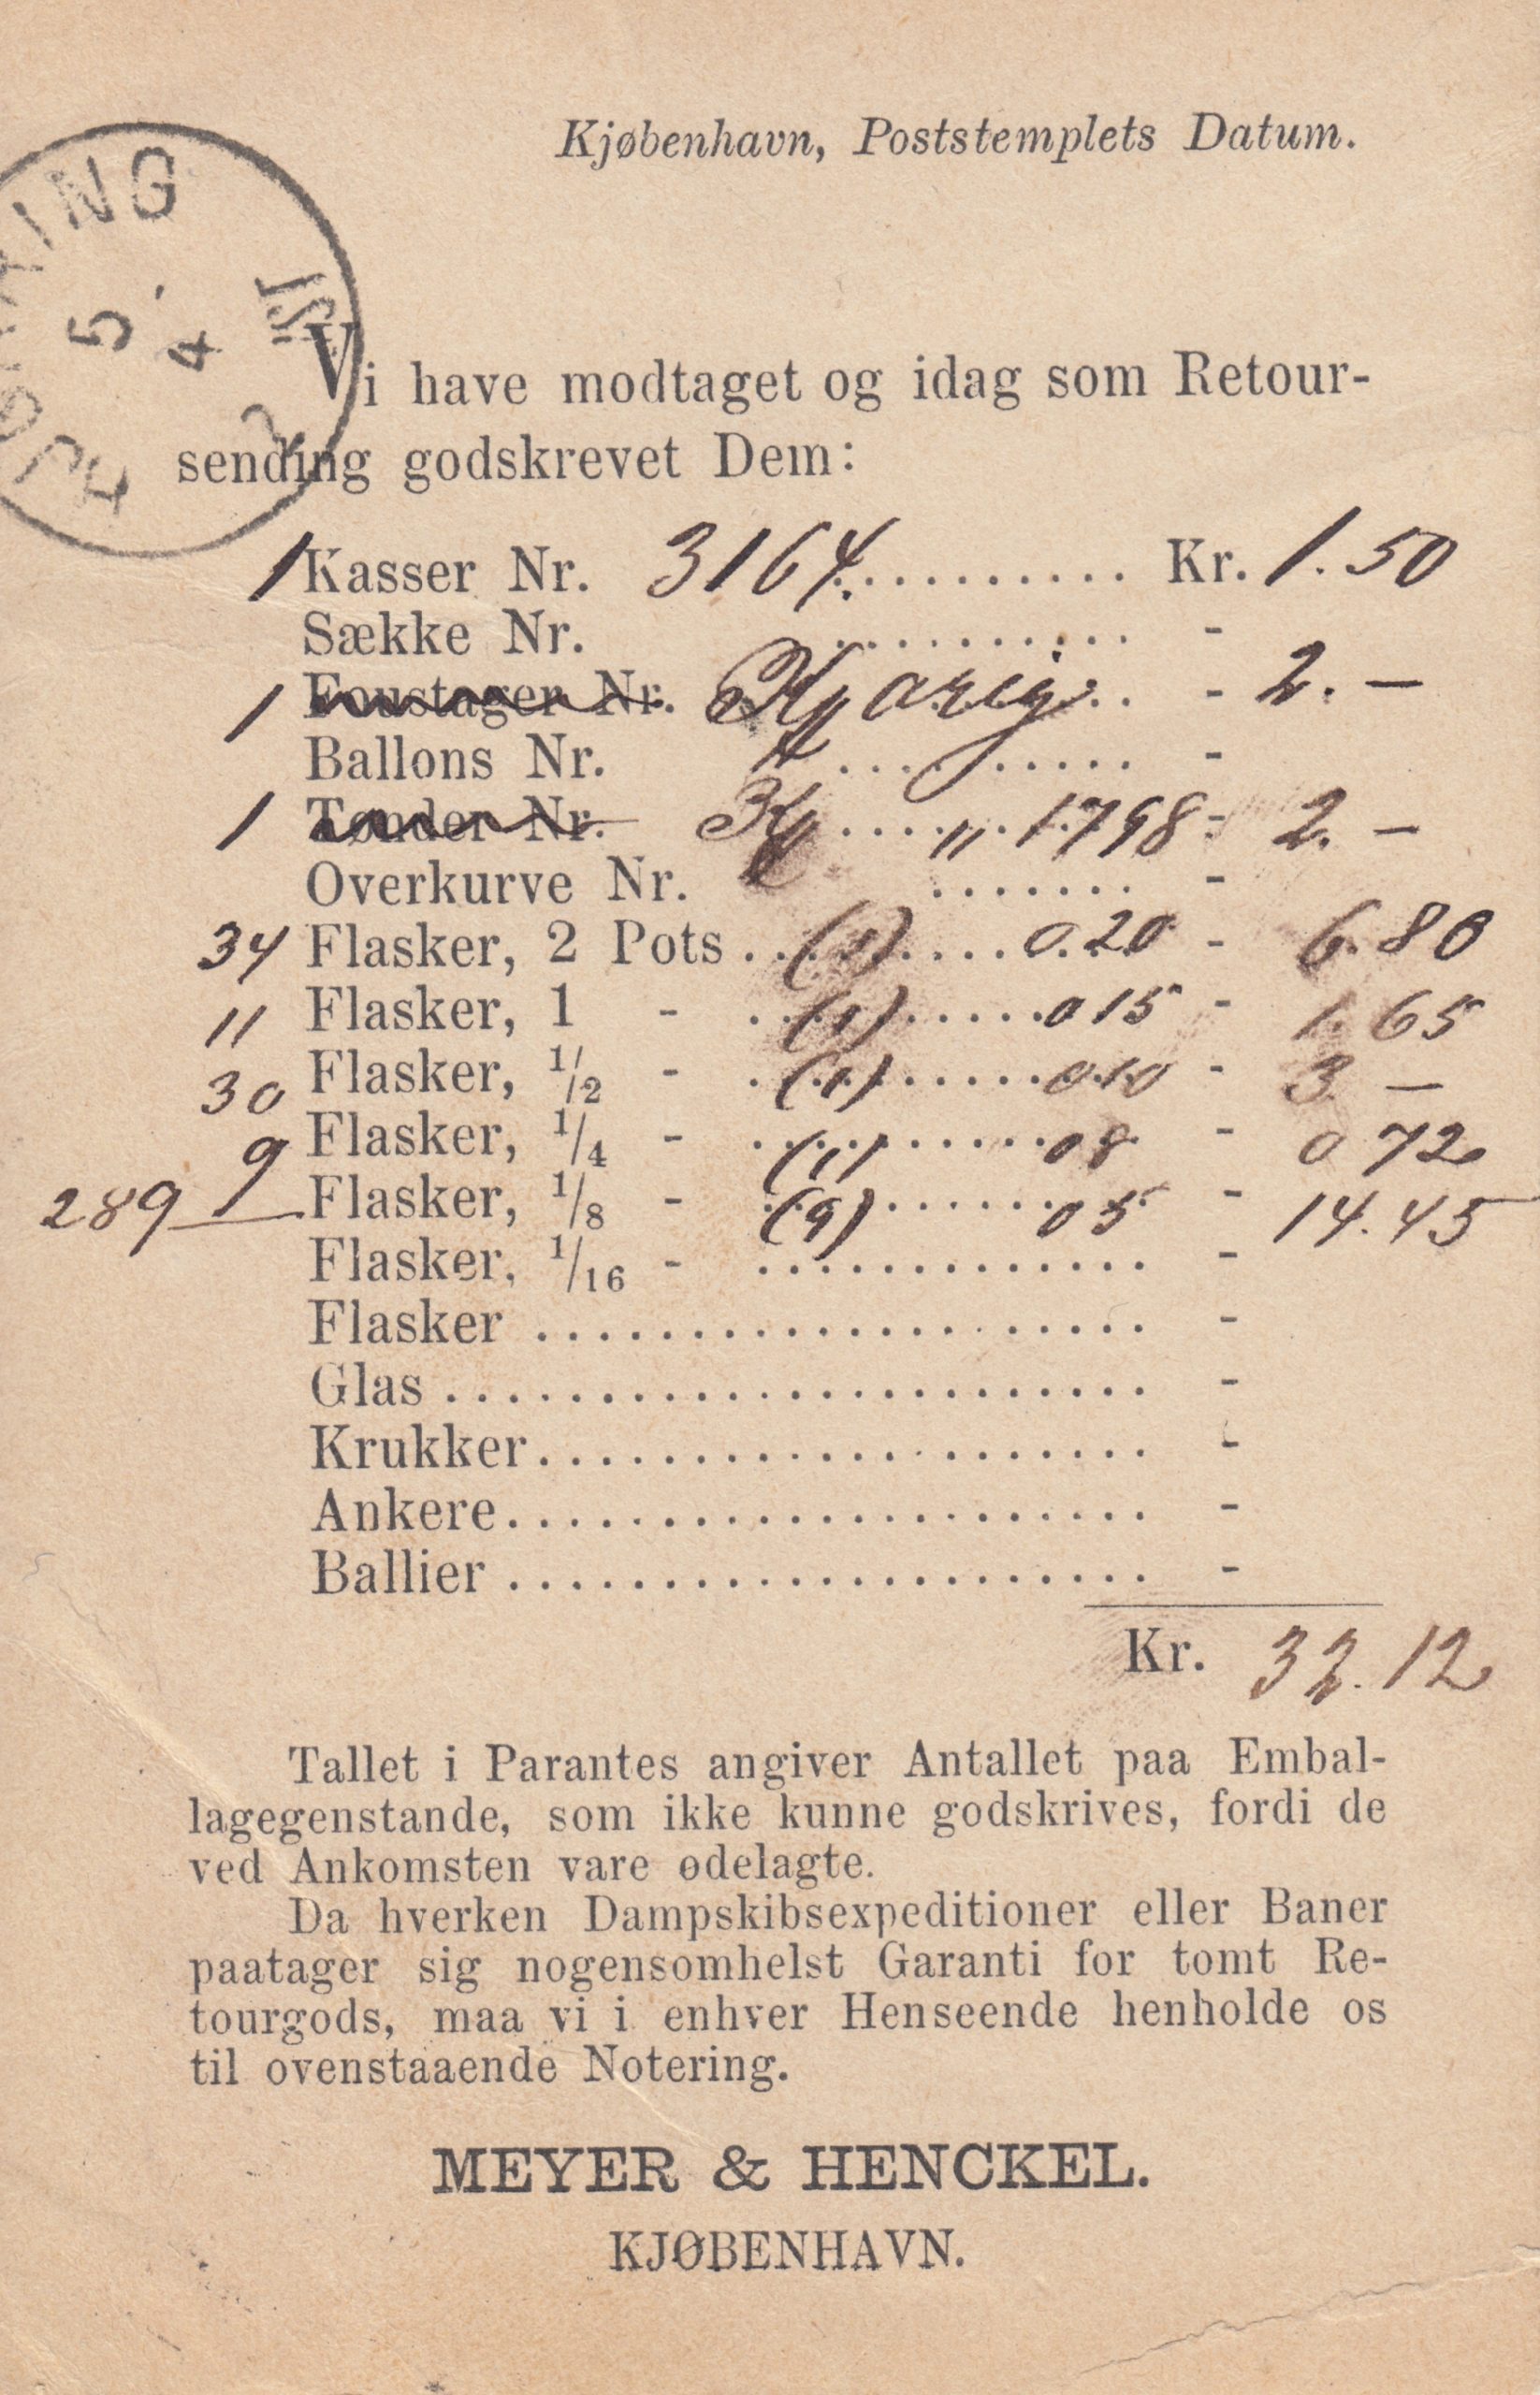 Kjøbenhavn, Poststemplets Datum.
5 4
Vi have modtaget og idag som Retour-
sending godskrevet Dem:
1 Kasser Nr. 3164. .......... Kr. 1.50
Sække Nr. .......... -
1 Foustager Nr. .. - 2. —
Ballons Nr. .......... -
1 Tønder Nr. .... " 1798 - 2. —
Overkurve Nr. ....... -
34 Flasker, 2 Pots ..(1).... 0.20 - 6.80
11 Flasker, 1 - ..(1)..... 0 15 - 1.65
30 Flasker, 1/2 - .(1)..... 0.10 - 3 —
9 Flasker, 1/4 - (1) 0 8 - 0 72
289 Flasker, 1/8 - (9) ...... 0 5 - 14.45
Flasker, 1/16 - ............. -
Flasker .................... -
Glas ....................... -
Krukker .................... -
Ankere ..................... -
Ballier ..................... -
Kr. 32.12
Tallet i Parantes angiver Antallet paa Embal-
lagegenstande, som ikke kunne godskrives, fordi de
ved Ankomsten vare ødelagte.
Da hverken Dampskibsexpeditioner eller Baner
paatager sig nogensomhelst Garanti for tomt Re-
tourgods, maa vi i enhver Henseende henholde os
til ovenstaaende Notering.
MEYER & HENCKEL.
KJØBENHAVN.